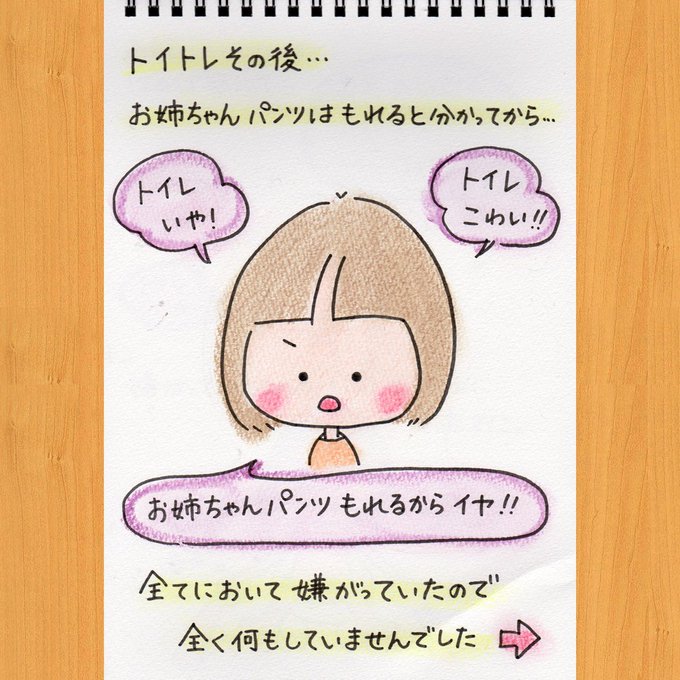 トイトレその後…
お姉ちゃんパンツはもれると分かってから…
トイレ
いや!
トイレ
こわい!!
お姉ちゃんパンツもれるからイヤ!!
全てにおいて嫌がっていたので
全く何もしていませんでした